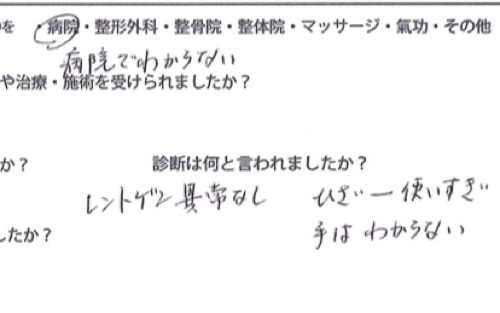 を ・病院・整形外科・整骨院・整体院・マッサージ・氣功・その他
病院でわからない
や治療・施術を受けられましたか？
か？ 診断は何と言われましたか？
レントゲン異常なし ひざー使いすぎ
したか？ 手は わからない